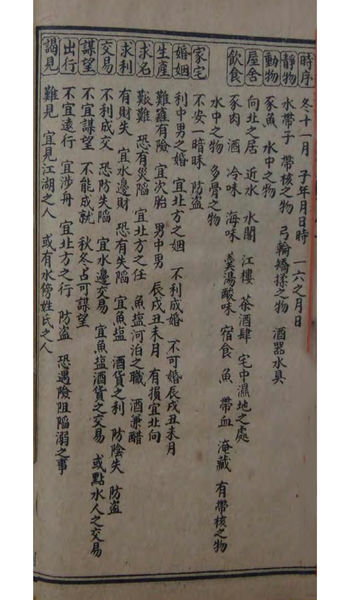 時序 冬十一月 子年月日時 一六之月日
靜物 水帶子 帶核之物 弓輪矯揉之物 酒器水具
動物 豕魚 水中之物
屋舍 向北之居 近水 水閣 江樓 茶酒肆 宅中濕地之處
飲食 豕肉 酒 冷味 海味 羹湯酸味 宿食 魚 帶血 淹藏 有帶核之物
水中之物 多骨之物
家宅 不安一暗昧 防盜
婚姻 利中男之婚 宜北方之姻 不利成婚 不可婚辰戌丑未月
生產 難產有險 宜次胎 男中男 辰戌丑未月 有損宜北向
求名 艱難 恐有災陷 宜北方之任 魚塩河泊之職 酒兼醋
求利 有財失 宜水邊財 恐有失陷 宜魚塩 酒貨之利 防陰失 防盜
交易 不利成交 恐防失陷 宜水邊交易 宜魚塩酒貨之交易 或點水人之交易
謀望 不宜謀望 不能成就 秋冬占可謀望
出行 不宜遠行 宜涉舟 宜北方之行 防盜 恐遇險阻陷溺之事
謁見 難見 宜見江湖之人 或有水傍姓氏之人